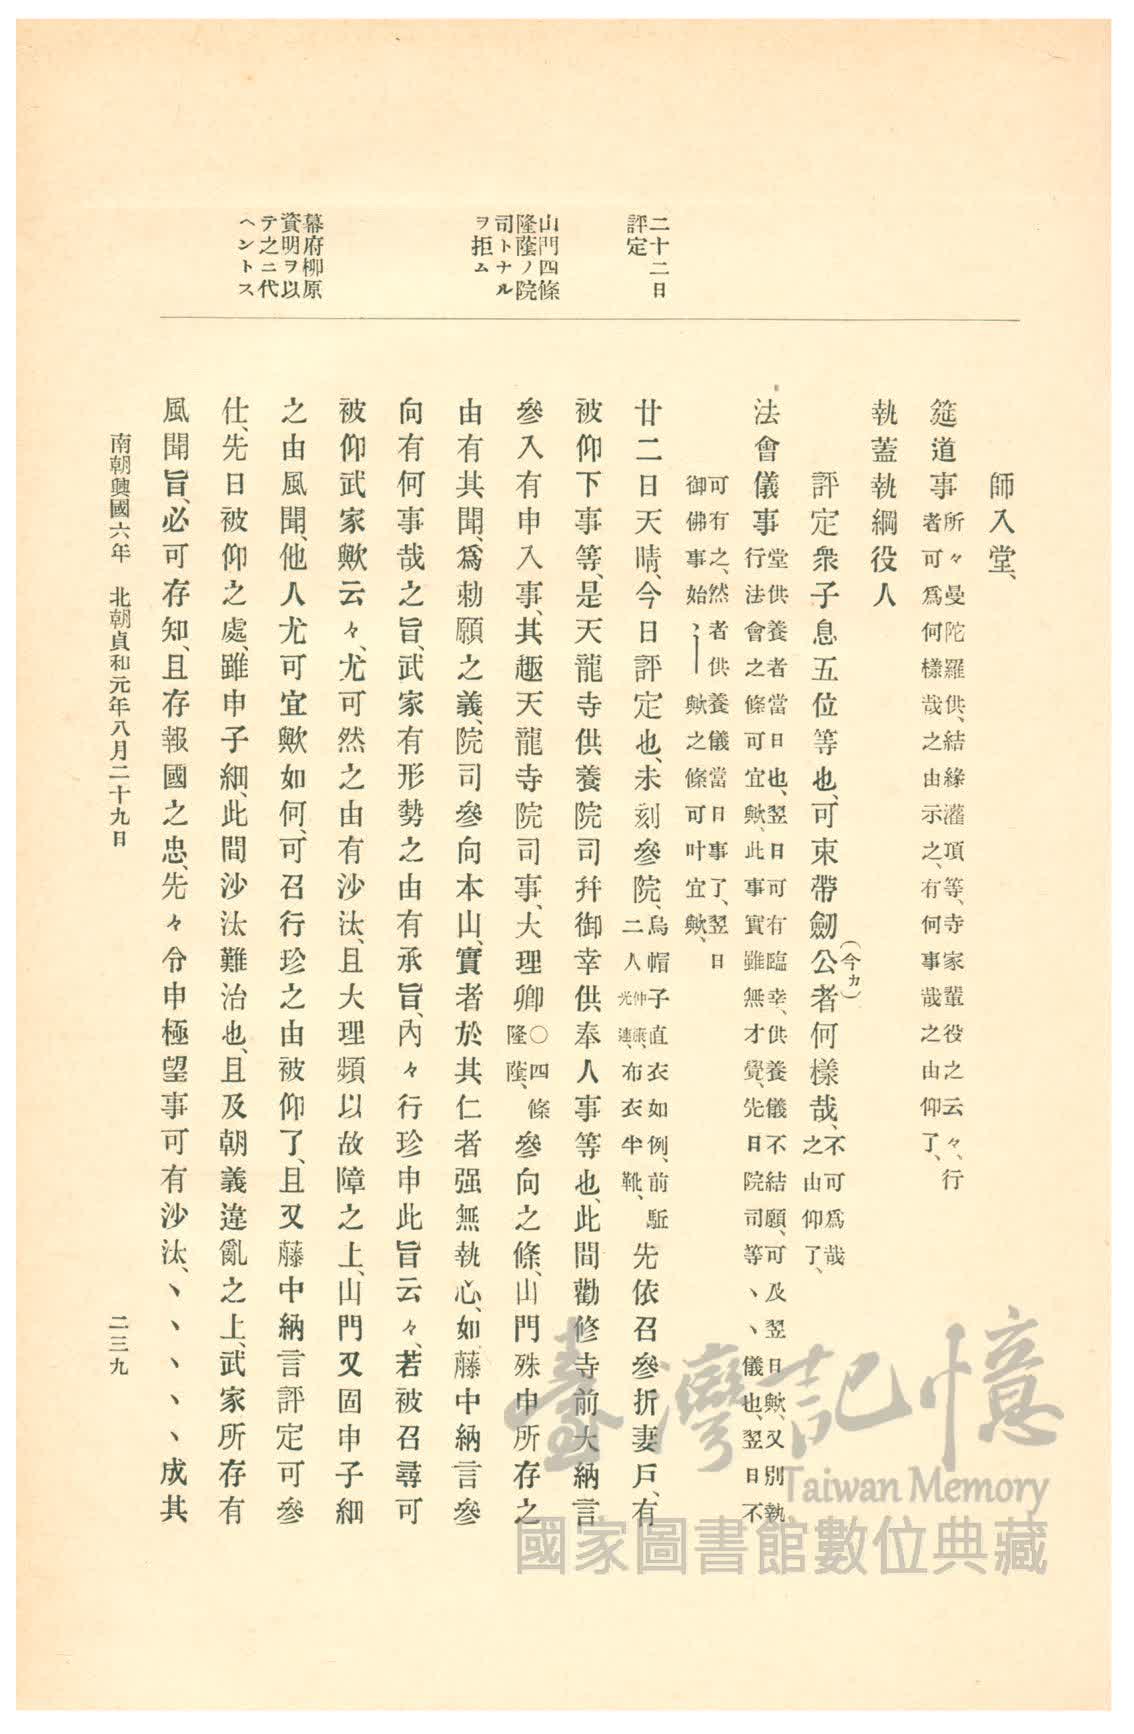 二十二日
評定
山門四條
隆蔭ノ院
司トナル
ヲ拒ム
幕府柳原
資明ヲ以
テ之ニ代
ヘントス
師入堂、
筵道事所々曼陀羅供、結緣灌頂等、寺家輩役之云々、行
者可爲何樣哉之由示之、有何事哉之由仰了、
執蓋執綱役人
評定衆子息五位等也、可束帶劒公(今カ)者何樣哉、不可爲哉
之由仰了、
法會儀事堂供養者當日也、翌日可有臨幸、供養儀不結願、可及翌日歟、又別執
行法會之條可宜歟、此事實雖無才覺、先日院司等ヽヽ儀也、翌日不
可有之、然者供養儀當日事了、翌日
御佛事始ヽ―歟之條可叶宜歟、
廿二日天晴、今日評定也、未刻參院、烏帽子直衣如例、前駈
二人仲康、光連、布衣半靴、先依召參折妻戶、有
被仰下事等、是天龍寺供養院司幷御幸供奉人事等也、此間勸修寺前大納言
參入有申入事、其趣天龍寺院司事、大理卿〇四條隆蔭、參向之條、山門殊申所存之
由有其聞、爲勅願之義、院司參向本山、實者於其仁者强無執心、如藤中納言參
向有何事哉之旨、武家有形勢之由有承旨、內々行珍申此旨云々、若被召尋可
被仰武家歟云々、尤可然之由有沙汰、且大理頻以故障之上、山門又固申子細
之由風聞、他人尤可宜歟如何、可召行珍之由被仰了、且又藤中納言評定可參
仕、先日被仰之處、雖申子細、此間沙汰難治也、且及朝義違亂之上、武家所存有
風聞旨、必可存知、且存報國之忠、先々令申極望事可有沙汰、ヽヽヽヽヽ成其
南朝興國六年　北朝貞和元年八月二十九日
二三九
臺灣記憶
Taiwan Memory
國家圖書館數位典藏